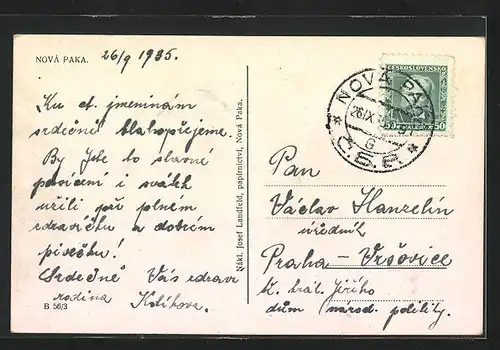 NOVÁ PAKA. 26/9 1935.
Ku ct. jmeninám
srdečně blahopřejeme.
By jste to slavné
posvícení i svátek
užili při plném
zdravíčku a dobrém
pivečku!
Srdečně Vás zdraví
rodina
B 56/3
Nákl. Josef Landfeld, papírnictví, Nova Paka.
ČESKOSLOVENSKO
50
NOVÁ PAKA
26.IX.
G
Č.S.P.
Pan
Václav Hanzelín
úředník
Praha - Vršovice
tř. král. Jiřího
dům národ. politiky.